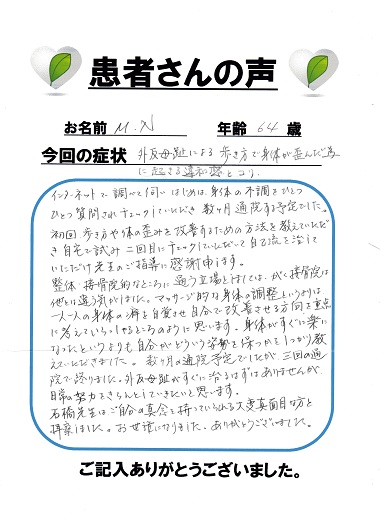 患者さんの声
お名前 M.N 年齢 64 歳
今回の症状 外反母趾による歩き方で身体が歪んだ為
に起きる違和感とコリ
インターネットで調べて伺いはじめは、身体の不調をひとつ
ひとつ質問されチェックしていただき 数ヶ月通院する予定でした。
初回 歩き方や体の歪みを改善するための方法を教えていただ
き自宅で試み 二回目にチェックしていただいて自己流を治して
いただけ先生のご指導に感謝申します。
整体・接骨院的なところに通う立場としては、かく接骨院は
他とは違う気がしました。マッサージ的な身体の調整というよりは
一人一人の身体の癖を自覚させ自分で改善させる方向を重点
に考えていらっしゃるところのように思います。身体がすぐに楽に
なったというよりも自分がどういう姿勢を保つかをしっかり教
えていただきました。数ヶ月の通院予定でしたが、三回の通
院で終りました。外反母趾がすぐに治るはずはありませんが
日常の努力をきちんとしていきたいと思います。
石橋先生はご自分の真念を持っていらっしゃる大変真面目な方と
拝察しました。お世話になりました。ありがとうございました。
ご記入ありがとうございました。